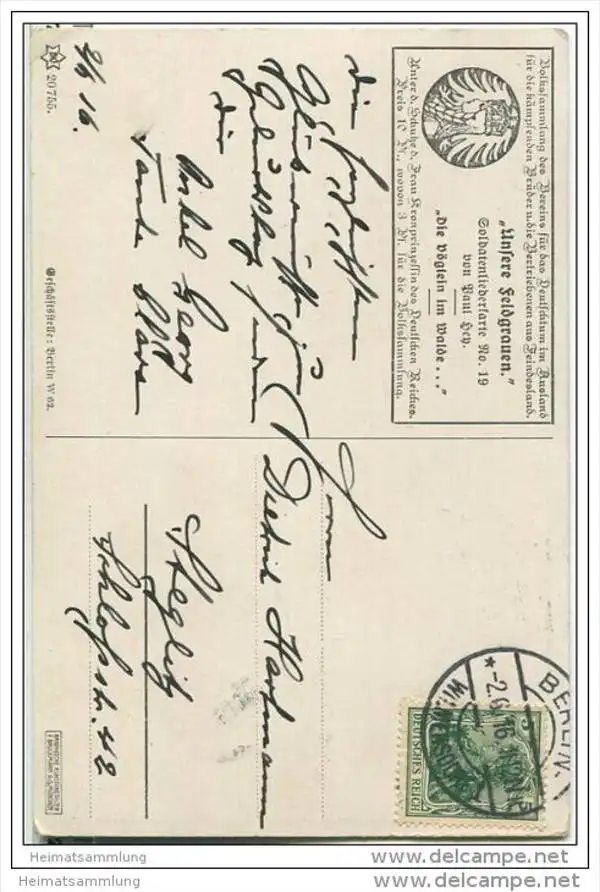 Volkssammlung des Vereins für das Deutschtum im Ausland
für die kämpfenden Brüder u. die Vertriebenen aus Feindesland.
"Unsere Feldgrauen."
Soldatenliederkarte No. 19
von Paul Hey.
"Die Vöglein im Walde..."
Unter d. Schutze d. Frau Kronprinzessin des Deutschen Reiches.
Preis 10 Pf., wovon 3 Pf. für die Volkssammlung.
die herzlichsten
Glückwünsche
Geburtstag
die
Onkel Georg
Tante Klara
2/6 16.
20755.
Geschäftsstelle: Berlin W 62.
Herrn
Dietrich Hartmann
Steglitz
Schloßstr. 42
BERLIN
WILMERSDORF
DEUTSCHES REICH
5
Heimatsammlung
Heimatsammlung
www.delcampe.net
www.delcampe.net